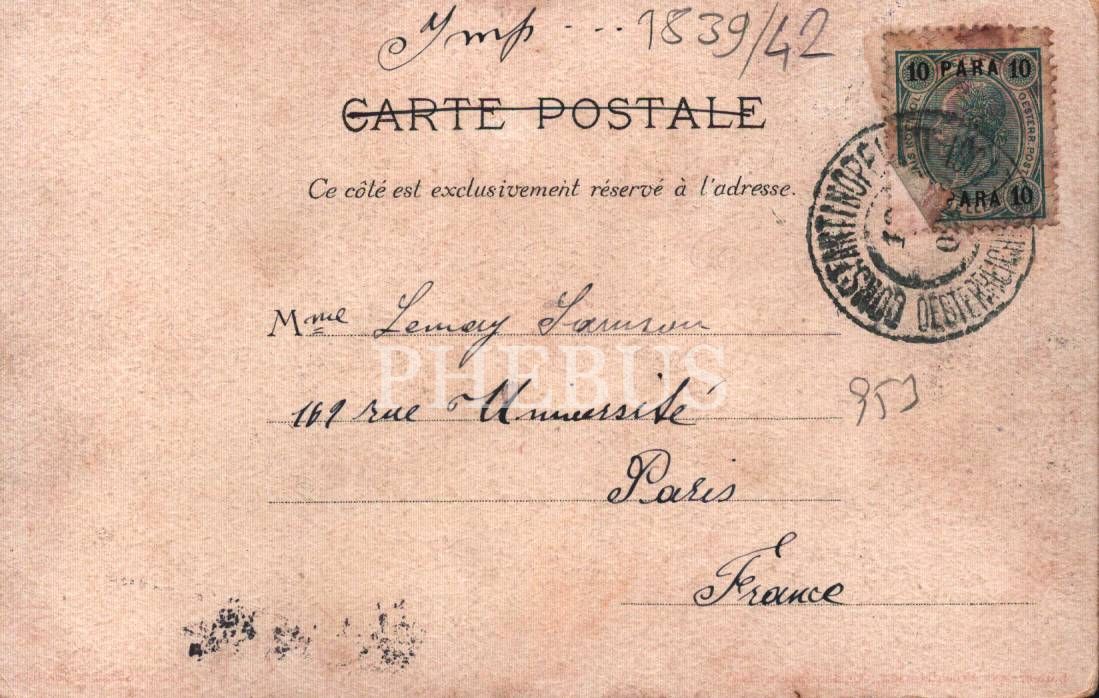 Imp ... 1839/42
CARTE POSTALE
Ce côté est exclusivement réservé à l'adresse.
10 PARA 10
PARA 10
OESTERR. POST
CONSTANTINOPEL
OESTERREICH
Mme Lemay
PHEBUS
169 rue Université
953
Paris
France